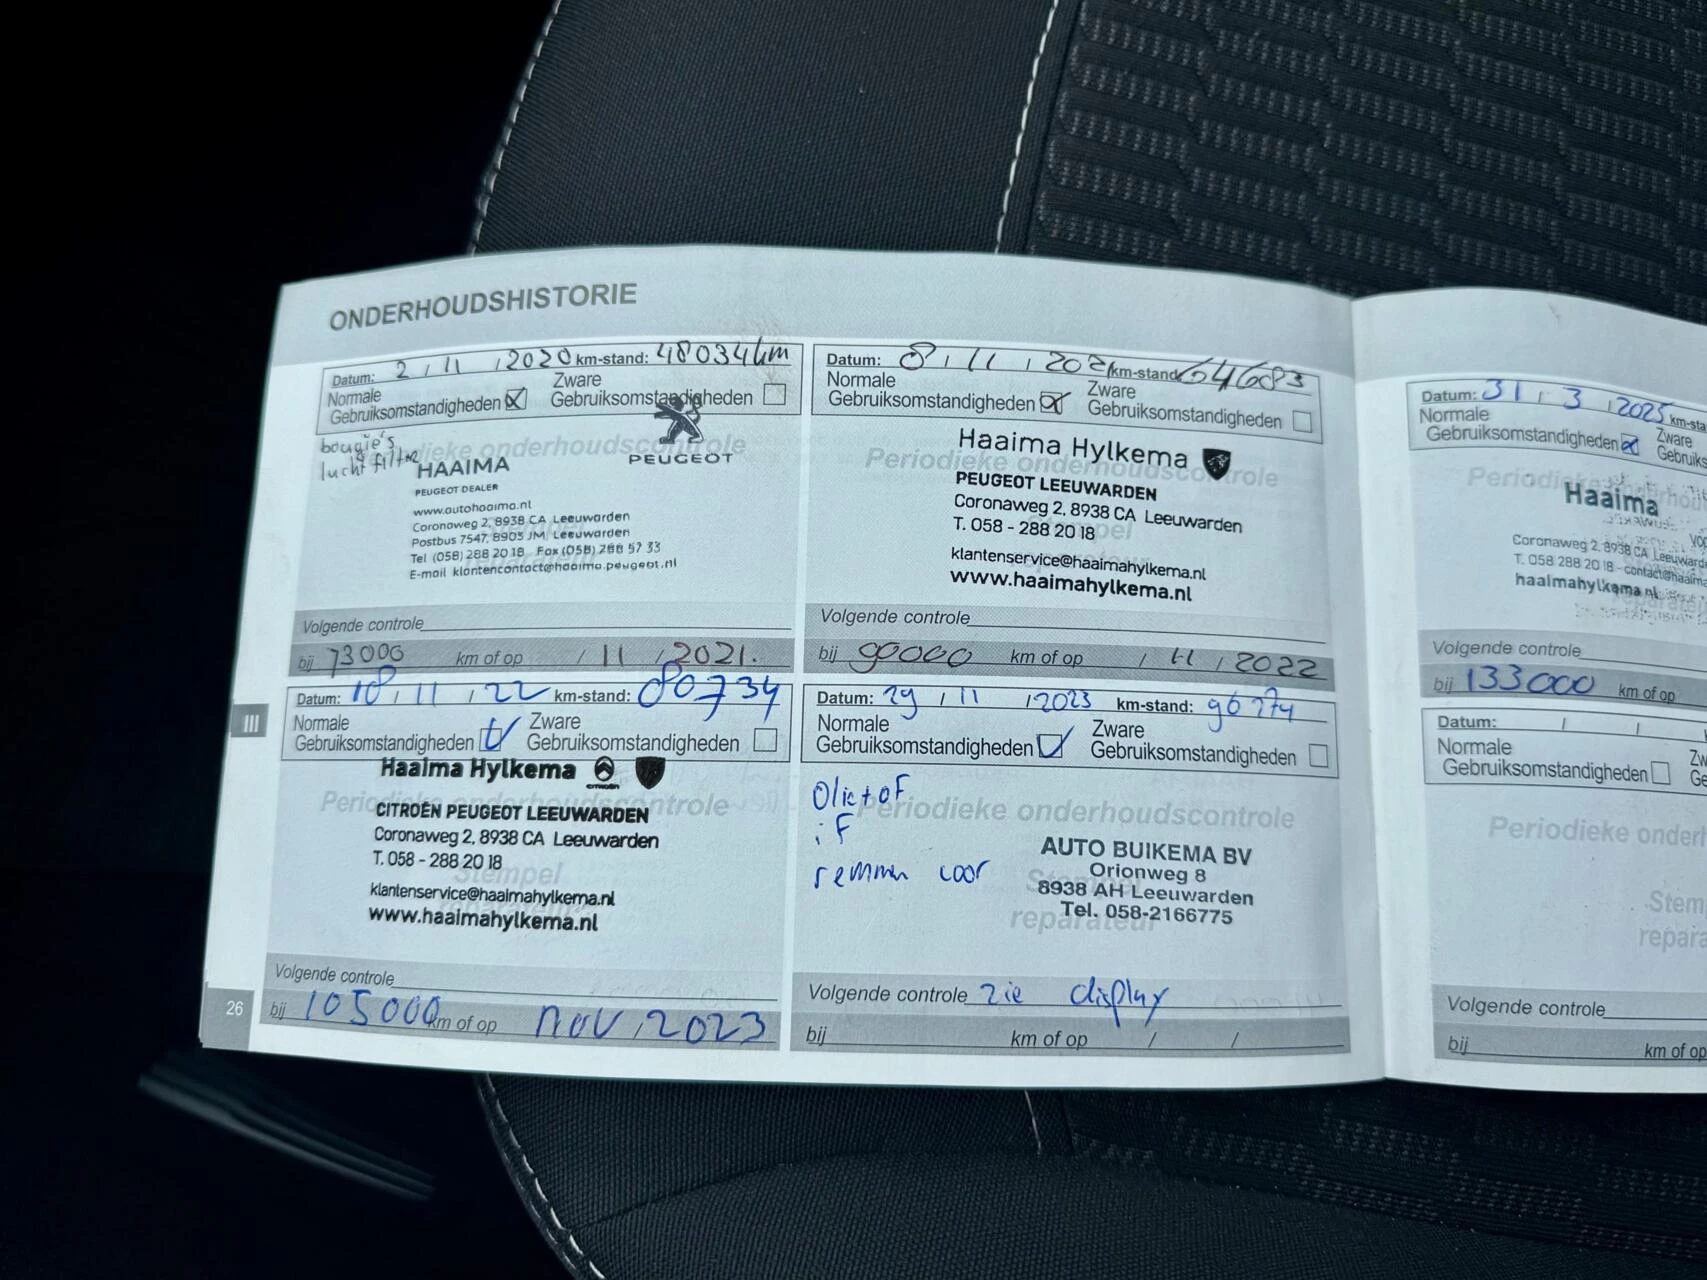 ONDERHOUDSHISTORIE
Datum: 2 / 11 / 2020 km-stand: 48034km
Normale
Gebruiksomstandigheden
Zware
Gebruiksomstandigheden
bougie's
lucht filter
Periodieke onderhoudscontrole
HAAIMA
PEUGEOT DEALER
PEUGEOT
www.autohaaima.nl
Coronaweg 2, 8938 CA Leeuwarden
Postbus 7547, 8903 JM Leeuwarden
Tel (058) 288 20 18 Fax (058) 288 57 33
E-mail klantencontact@haaima.peugeot.nl
Volgende controle
bij 73000 km of op / 11 / 2021.
Datum: 8 / 11 / 2021 km-stand: 64683
Normale
Gebruiksomstandigheden
Zware
Gebruiksomstandigheden
Periodieke onderhoudscontrole
Haaima Hylkema
PEUGEOT LEEUWARDEN
Coronaweg 2, 8938 CA Leeuwarden
Stempel
T. 058 - 288 20 18
klantenservice@haaimahylkema.nl
www.haaimahylkema.nl
Volgende controle
bij 90000 km of op / 11 / 2022
Datum: 18 / 11 / 22 km-stand: 80734
Normale
Gebruiksomstandigheden
Zware
Gebruiksomstandigheden
Haaima Hylkema
CITROËN
Periodieke onderhoudscontrole
CITROËN PEUGEOT LEEUWARDEN
Coronaweg 2, 8938 CA Leeuwarden
T. 058 - 288 20 18
Stempel
klantenservice@haaimahylkema.nl
www.haaimahylkema.nl
Volgende controle
bij 105000 km of op nov / 2023
Datum: 29 / 11 / 2023 km-stand: 96274
Normale
Gebruiksomstandigheden
Zware
Gebruiksomstandigheden
Olie + oF
iF
remmen voor
Periodieke onderhoudscontrole
AUTO BUIKEMA BV
Orionweg 8
Stempel
8938 AH Leeuwarden
Tel. 058-2166775
reparateur
Volgende controle zie display
bij km of op / /
III
26
Datum: 31 / 3 / 2025 km-sta
Normale
Gebruiksomstandigheden
Zware
Gebruiks
Haaima
Coronaweg 2, 8938 CA Leeuward
T. 058 288 20 18 - contact@haaima
haaimahylkema.nl
Volgende controle
bij 133000 km of op
Datum: / /
Normale
Gebruiksomstandigheden
Zw
Ge
Periodieke onder
Stem
repara
Volgende controle
bij km of op